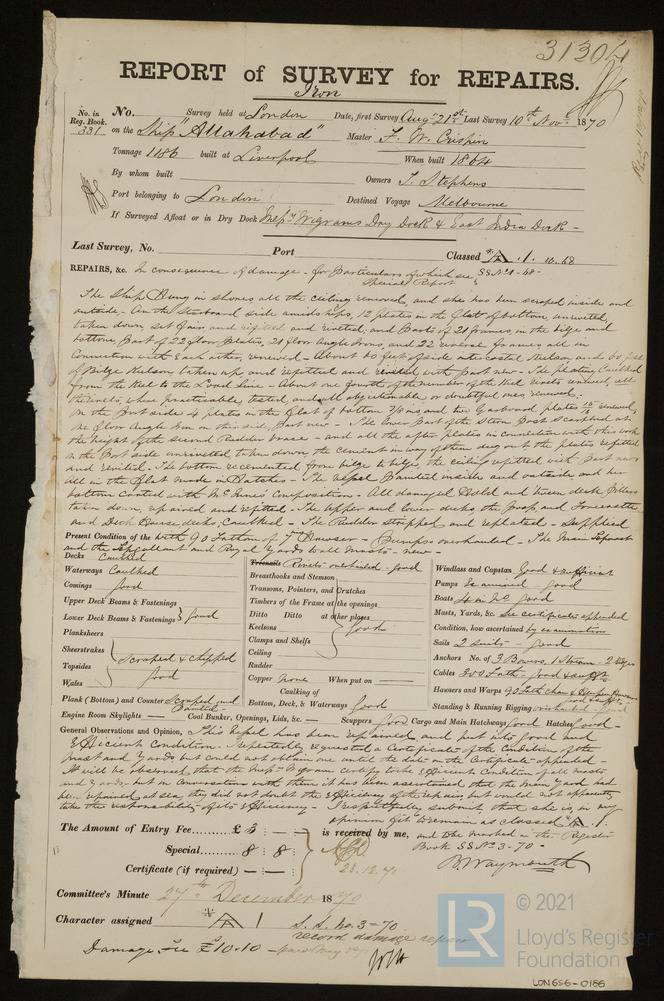 31304
REPORT of SURVEY for REPAIRS.
Iron
No. in Reg. Book. 331
No. Survey held at London Date, first Survey Augt 21st Last Survey 10th Novr 1870
on the Ship "Allahabad" Master F. W. Crispin
Tonnage 1186 built at Liverpool When built 1864
By whom built Owners T. Stephens
Port belonging to London Destined Voyage Melbourne
If Surveyed Afloat or in Dry Dock Messrs Wigrams Dry Dock & East India Dock -
Last Survey, No. Port Classed A 1. 10.68
REPAIRS, &c. In consequence of damage - for Particulars of which see
Special Report
The Ship Being in shores all the ceiling removed, and she has been scraped inside and
outside - On the Starboard side amidships, 12 plates in the flat of bottom, unriveted,
taken down, set fair, and refitted and riveted; and Parts of 21 frames, in the bilge and
bottom, Part of 22 floor plates, 21 floor Angle Irons, and 22 reverse frames all in
connection with each other, renewed - About 60 feet of side inter-costal Kelson, and 60 feet
of Bilge Kelson, taken up and refitted and riveted with part new - The plating Caulked
from the Keel to the Load line - About one fourth of the number of the Keel rivets renewed, all
the rivets, where practicable, tested, and all objectionable or doubtful ones, renewed;
On the Port side 4 plates in the flat of bottom and two Garboard plates renewed,
one floor Angle Iron on this side, Part new - The lower Part of the Stern Post Scarphed at
the height of the second Rudder brace - and all the after plates in connection with this work
on the Port side unriveted, taken down, the cement in way of them dug out, the plates refitted
and riveted. The bottom recemented from bilge to bilge, the ceiling refitted with Part new
all in the flat made in Hatches - The Vessel Painted inside and outside and her
bottom coated with McInnes' Composition - All damaged Hold and tween deck Pillars
taken down, repaired and refitted. The upper and lower decks, the Poop, and Forecastle
and Deck House decks, Caulked - The Rudder stripped and replated - Supplied
Present Condition of the with 90 Fathom of Hawser - Pumps overhauled - The Main Topmast
and the Topgallant and Royal Yards to all Masts - new -
Decks Caulked
Waterways Caulked
Comings Good
Upper Deck Beams & Fastenings
Lower Deck Beams & Fastenings } Good
Planksheers
Sheerstrakes
Topsides
Wales
Scraped & chipped
Good
Plank (Bottom) and Counter Scraped and Painted
Engine Room Skylights — Coal Bunker, Openings, Lids, &c. — Scuppers Good Cargo and Main Hatchways Good Hatches Good -
Treenails Rivets overhauled - good
Breasthooks and Stemson
Transoms, Pointers, and Crutches
Timbers of the Frame at the openings
Ditto Ditto at other places
Keelsons
Clamps and Shelfs
Ceiling
Good
Rudder
Copper none When put on —
Caulking of
Bottom, Deck, & Waterways Good
Windlass and Capstan Good & sufficient
Pumps Examined - good
Boats 4 in No Good
Masts, Yards, &c. See certificate appended
Condition, how ascertained by examination
Sails 2 suits - good
Anchors No. of 3 Bowers, 1 Stream - 2 Kedges
Cables 300 Fath - Good & sufft
Hawsers and Warps 90 Fath
Standing & Running Rigging overhauled
General Observations and Opinion, This Vessel has been repaired, and put into good and
Efficient condition. I repeatedly requested a Certificate of the condition of the
mast and Yards but could not obtain one until the date on the Certificate appended -
It will be observed that the Messrs Wigram Certify to the Efficient Condition of all masts
and Yards - but in conversation with them it has been ascertained that the Main Yard had
been repaired at sea, they did not doubt the Efficiency of the repairs but would not apparently
take the responsibility of its Efficiency - I respectfully submit that she is, in my
opinion fit to remain as classed A 1.
The Amount of Entry Fee......... £ 3 — — is received by me, and to be marked in the Register
Special......... 8 8 Book SS No 3 - 70 -
23.12.70
Certificate (if required) — — B. Waymouth
Committee's Minute 27th December 1870
Character assigned A 1
S.S. No. 3 - 70
record damage repair
Damage Fee £10.10 -
© 2021
LR
Lloyd's Register
Foundation
LON656-0186